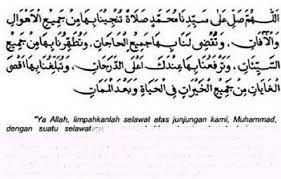 اَللّٰهُمَّ صَلِّ عَلٰى سَيِّدِنَا مُحَمَّدٍ صَلَاةً تُنْجِيْنَا بِهَا مِنْ جَمِيْعِ الْاَهْوَالِ
وَالْاٰفَاتِ، وَتَقْضِى لَنَا بِهَا جَمِيْعَ الْحَاجَاتِ، وَتُطَهِّرُنَا بِهَا مِنْ جَمِيْعِ
السَّيِّئَاتِ، وَتَرْفَعُنَا بِهَا عِنْدَكَ اَعْلَى الدَّرَجَاتِ، وَتُبَلِّغُنَا بِهَا اَقْصَى
الْغَايَاتِ مِنْ جَمِيْعِ الْخَيْرَاتِ فِى الْحَيَاةِ وَبَعْدَ الْمَمَاتِ
"Ya Allah, limpahkanlah selawat atas junjungan kami, Muhammad,
dengan suatu selawat